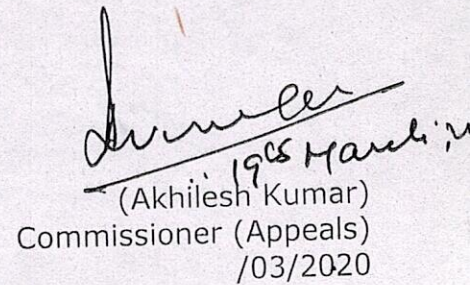 19th March,
(Akhilesh Kumar)
Commissioner (Appeals)
/03/2020